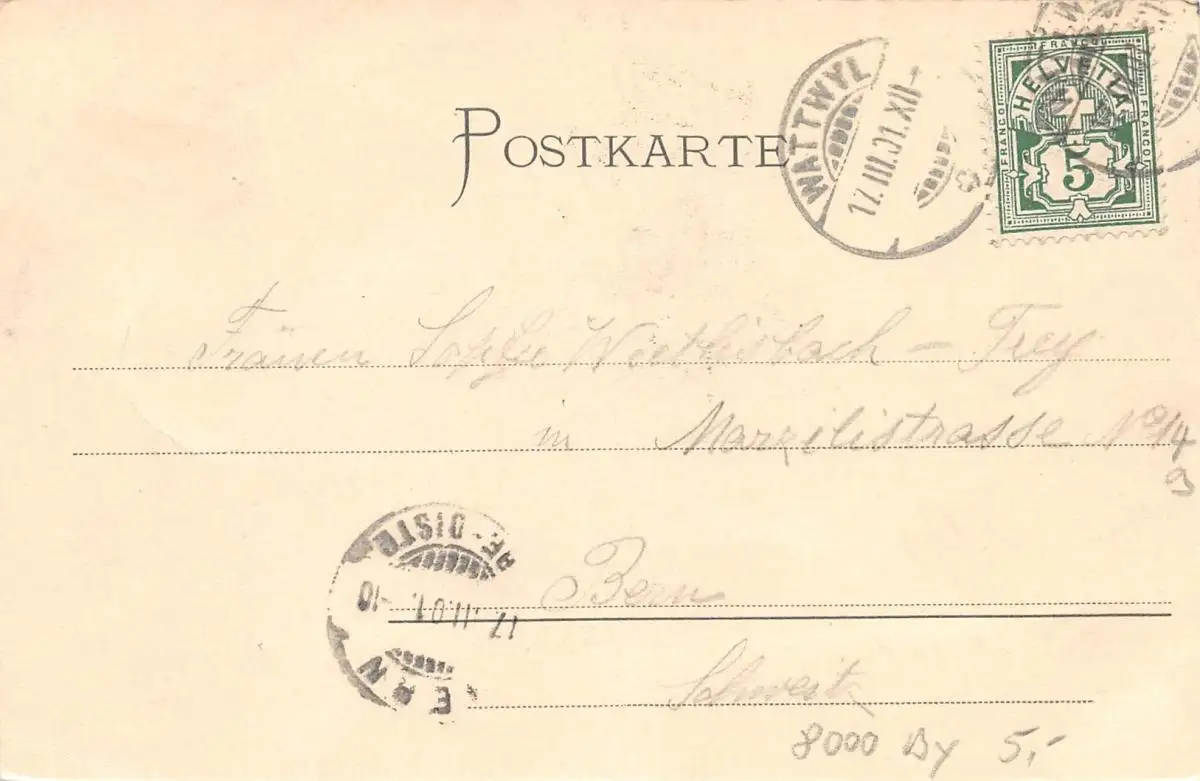 POSTKARTE
WATTWYL
17.III.01.XII-
FRANCO
HELVETIA
FRANCO
FRANCO
5
Sophie Wethlisbach - Frey
in Marzilistrasse No 14
Bern
Schweitz
BRF-DISTR
17.III.01. -10
BERN
8000 By 5,-